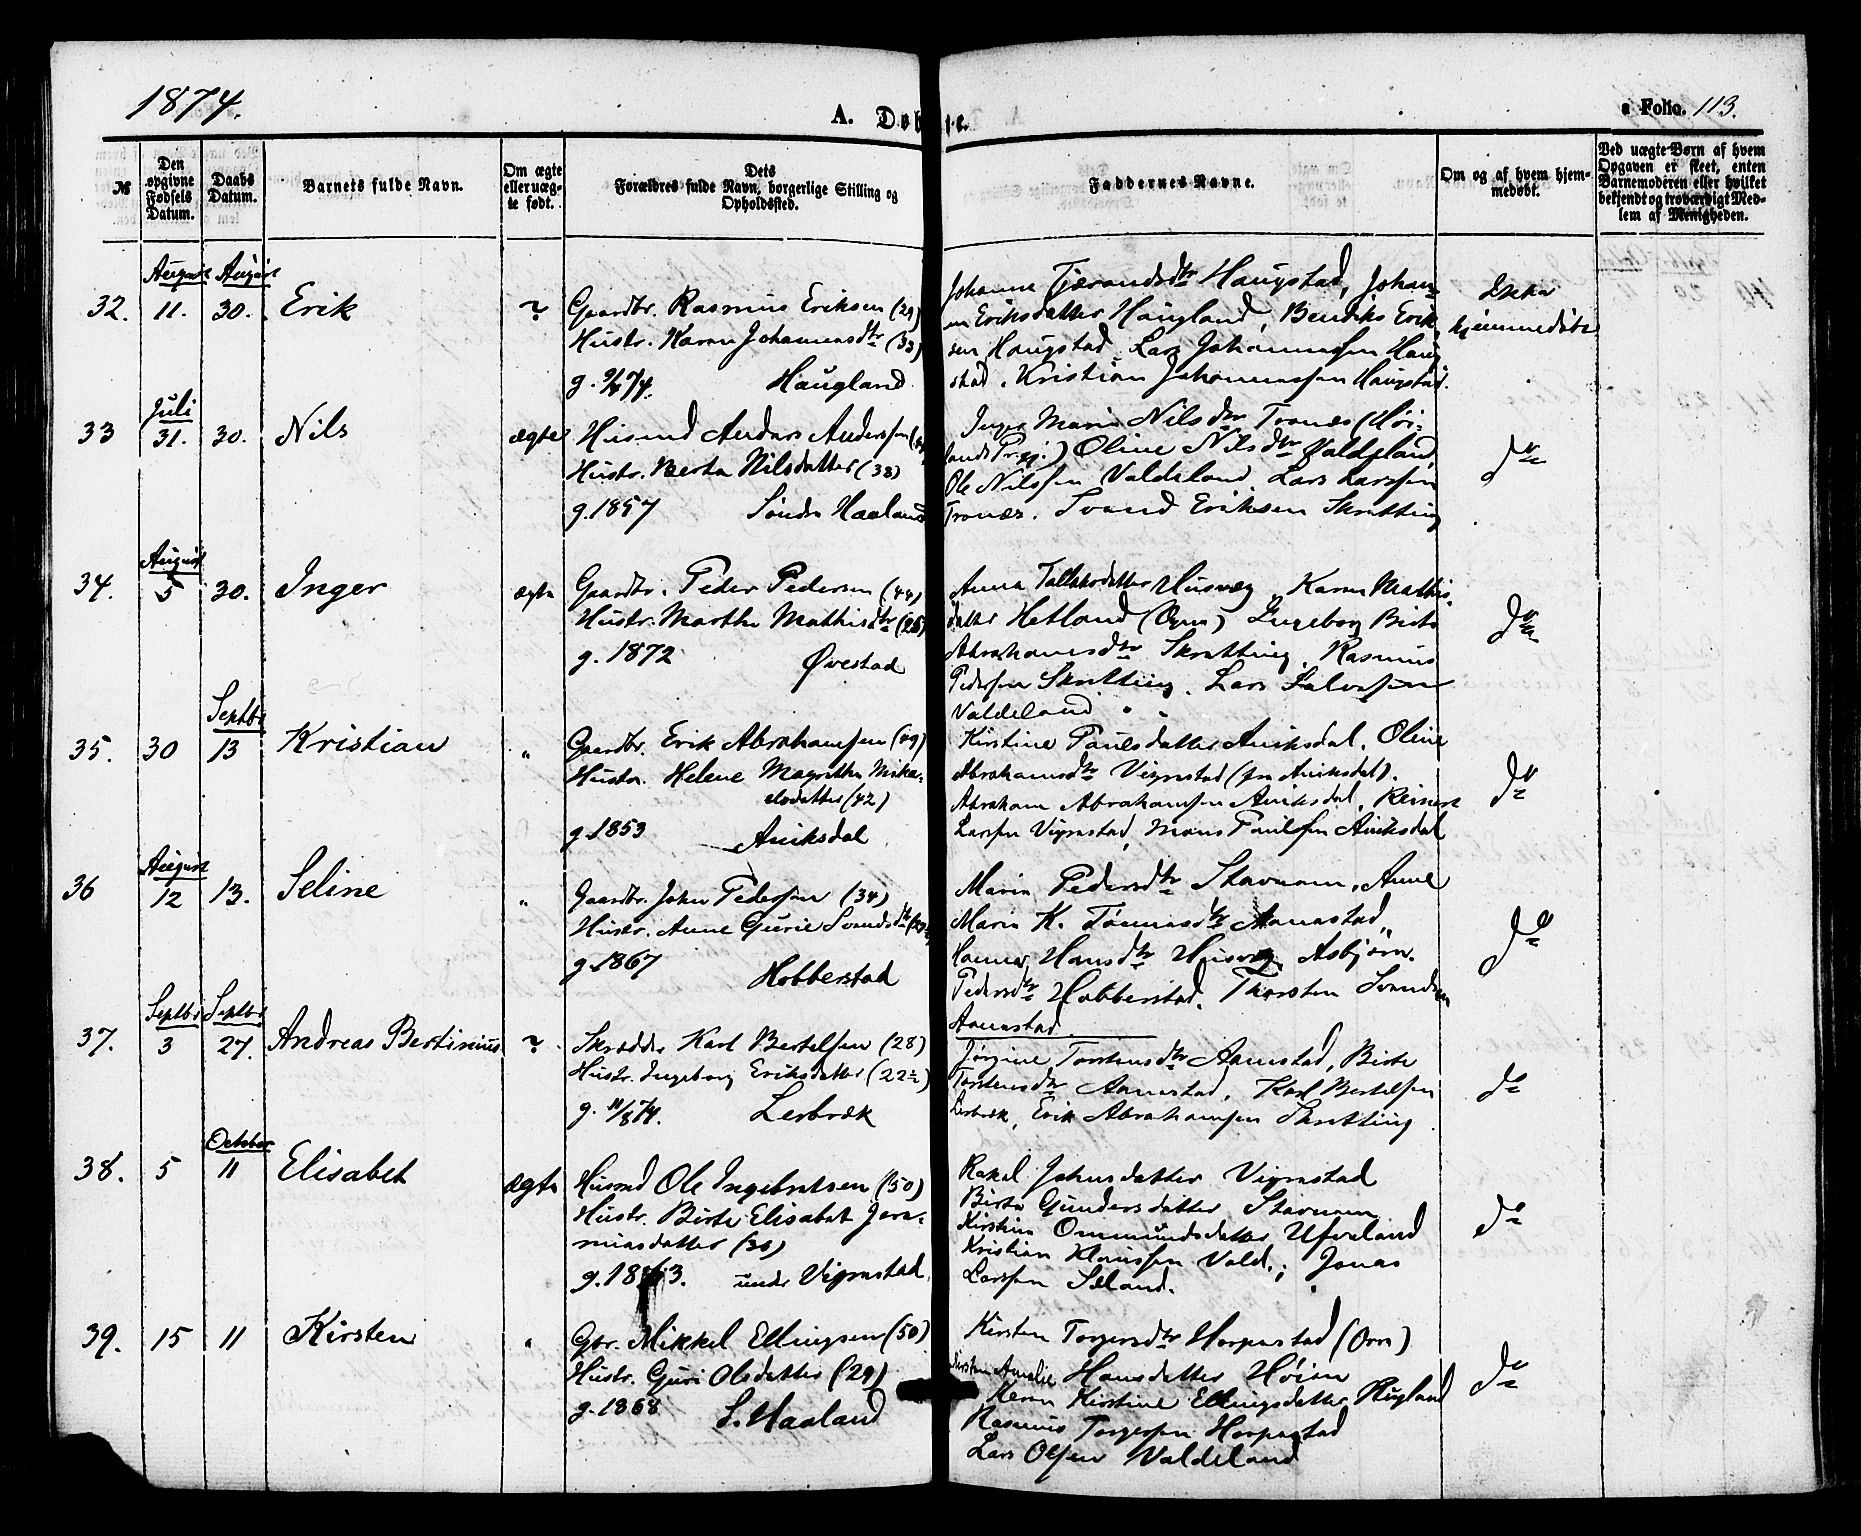 1874.
A. Døbte.
Folio. 113.
№
Den opgivne Fødsels Datum.
Daabs Datum.
Barnets fulde Navn.
Om ægte eller uægte født.
Dets Forældres fulde Navn, borgerlige Stilling og Opholdssted.
Faddernes Navne.
Om og af hvem hjemmedøbt.
Ved uægte Børn af hvem Opgaven er skeet, enten Barnemoderen eller hvilket bekjendt og troværdigt Medlem af Menigheden.
August August
32. 11. 30. Erik ? Gaardbr. Rasmus Eriksen (29)
Hustr. Karen Johannesdtr (33)
74. Haugland
Johanne Tjerandsdtr Haugstad, Johan-
Eriksdatter Haugland, Bendiks Erik-
sen Haugstad, Lars Johannessen Haug-
stad. Kristian Johannessen Haugstad.
Ikke
hjemmedøbt
Juli
33 31. 30. Nils ægte Husmd Anders Anderssen
Hustr. Berta Nilsdatter (38)
g. 1857 Søndr Haaland
Inger Maria Nilsdtr Tronæs (Høi-
lands Prgj.) Oline Nilsdtr Valdeland,
Ole Nilssen Valdeland. Lars Larssen
Tronæs. Svend Eriksen Skrætting
do
August
34. 5 30. Inger ægte Gaardbr. Peder Pedersen (44)
Hustr. Marthe Mathisdtr
g. 1872 Øvestad
Anna Husveg, Karen Mathis-
datter Hetland (Ogna) Ingeborg Birte
Abrahamsdtr Skrætting, Rasmus
Pedersen Skrætting. Lars Salvesen
Valdeland
do
Septbr
35. 30 13 Kristian " Gaardbr. Erik Abrahamsen (49)
Hustr. Helene Magrethe Mika-
elsdatter (42)
g. 1853 Aniksdal
Kirstine Paulsdatter Aniksdal, Oline
Abrahamsdtr Vigrestad (fra Aniksdal).
Abraham Abrahamsen Aniksdal, Reinert
Larssen Vigrestad, Mons Paulssen Aniksdal
do
August
36 12 13. Seline " Gaardbr. John Pederssen (34)
Hustr. Anne Gurie Svendsdtr
g. 1867 Hobberstad
Maria Pedersdtr Stavnam, Anne
Maria K. Tønnesdtr Aanestad,
Hansdtr Husveg Asbjørn
Hobberstad. Thorsten Svendsen
Aanestad.
do
Septbr Septbr
37. 3 27. Andreas Bertinius ? Skrædder Karl Bertelsen (28)
Hustr. Ingeborg Eriksdatter (22½)
g. 11/8 74. Lerbræk
Jørgine Torstensdtr Aanestad, Birte
Torstensdtr Aanestad, Karl Bertelsen
Lerbræk, Erik Abrahamsen Skrætting
do
October
38. 5 11 Elisabet ægte Husmd Ole Ingebretsen (50)
Hustr. Birte Elisabet Jere-
miasdatter
g. 1863. under Vigrestad.
Rakel Johnsdatter Vigrestad
Birte Gundersdatter Stavnam
Kirstine Ommundsdatter Ueland
Kristian Klausen Vold.; Jonas
Larssen Søland.
do
39. 15 11 Kirsten " Gbr. Mikkel Ellingsen (50)
Hustr. Guri Olsdatter (29)
g. 1868 S. Haaland
Kirsten Torgersdtr Horpestad (Orre)
Amalie Hansdatter Høien
Karen Kirstine Ellingsdatter Høyland
Rasmus Torgersen Horpestad
Lars Olsen Valdeland
do